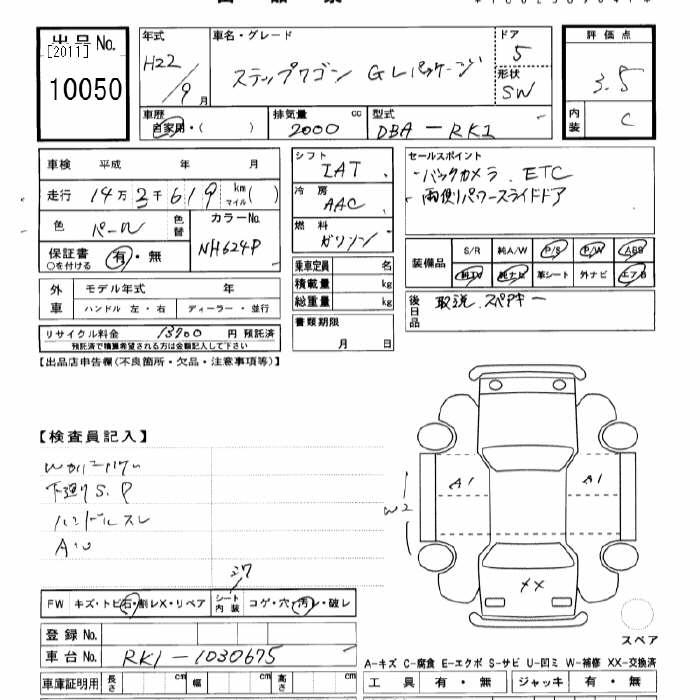 出品No.
[2011]
10050
年式
H22/9月
車名・グレード
ステップワゴン GLパッケージ
ドア
5
形状
SW
評価点
3.5
内装
C
車歴
自家用・( )
排気量 cc
2000
型式
DBA-RK1
車検 平成 年 月
走行 14万2千619 km マイル( )
色 パール
色替
カラーNo.
NH624P
保証書
○を付ける
有・無
シフト
IAT
冷房
AAC
燃料
ガソリン
セールスポイント
バックカメラ. ETC
両側パワースライドドア
装備品
S/R 純A/W P/S P/W ABS
純TV 純ナビ 革シート 外ナビ エアB
外車
モデル年式 年
ハンドル 左・右 ディーラー・並行
乗車定員 名
積載量 kg
総重量 kg
後日品
取説. スペアキー
書類期限
月 日
リサイクル料金 13900 円 預託済
預託済で積算希望される方は金額記入して下さい
【出品店申告欄(不良箇所・欠品・注意事項等)】
【検査員記入】
下廻りS.P
ハンドルスレ
A1
A1
W2
XX
シワ
FW キズ・トビ石・割レX・リペア
シート内装
コゲ・穴・汚レ・破レ
スペア
登録No.
車台No. RK1-1030675
A-キズ C-腐食 E-エクボ S-サビ U-凹ミ W-補修 XX-交換済
車庫証明用 長さ cm 幅 cm 高さ cm
工具 有・無 ジャッキ 有・無